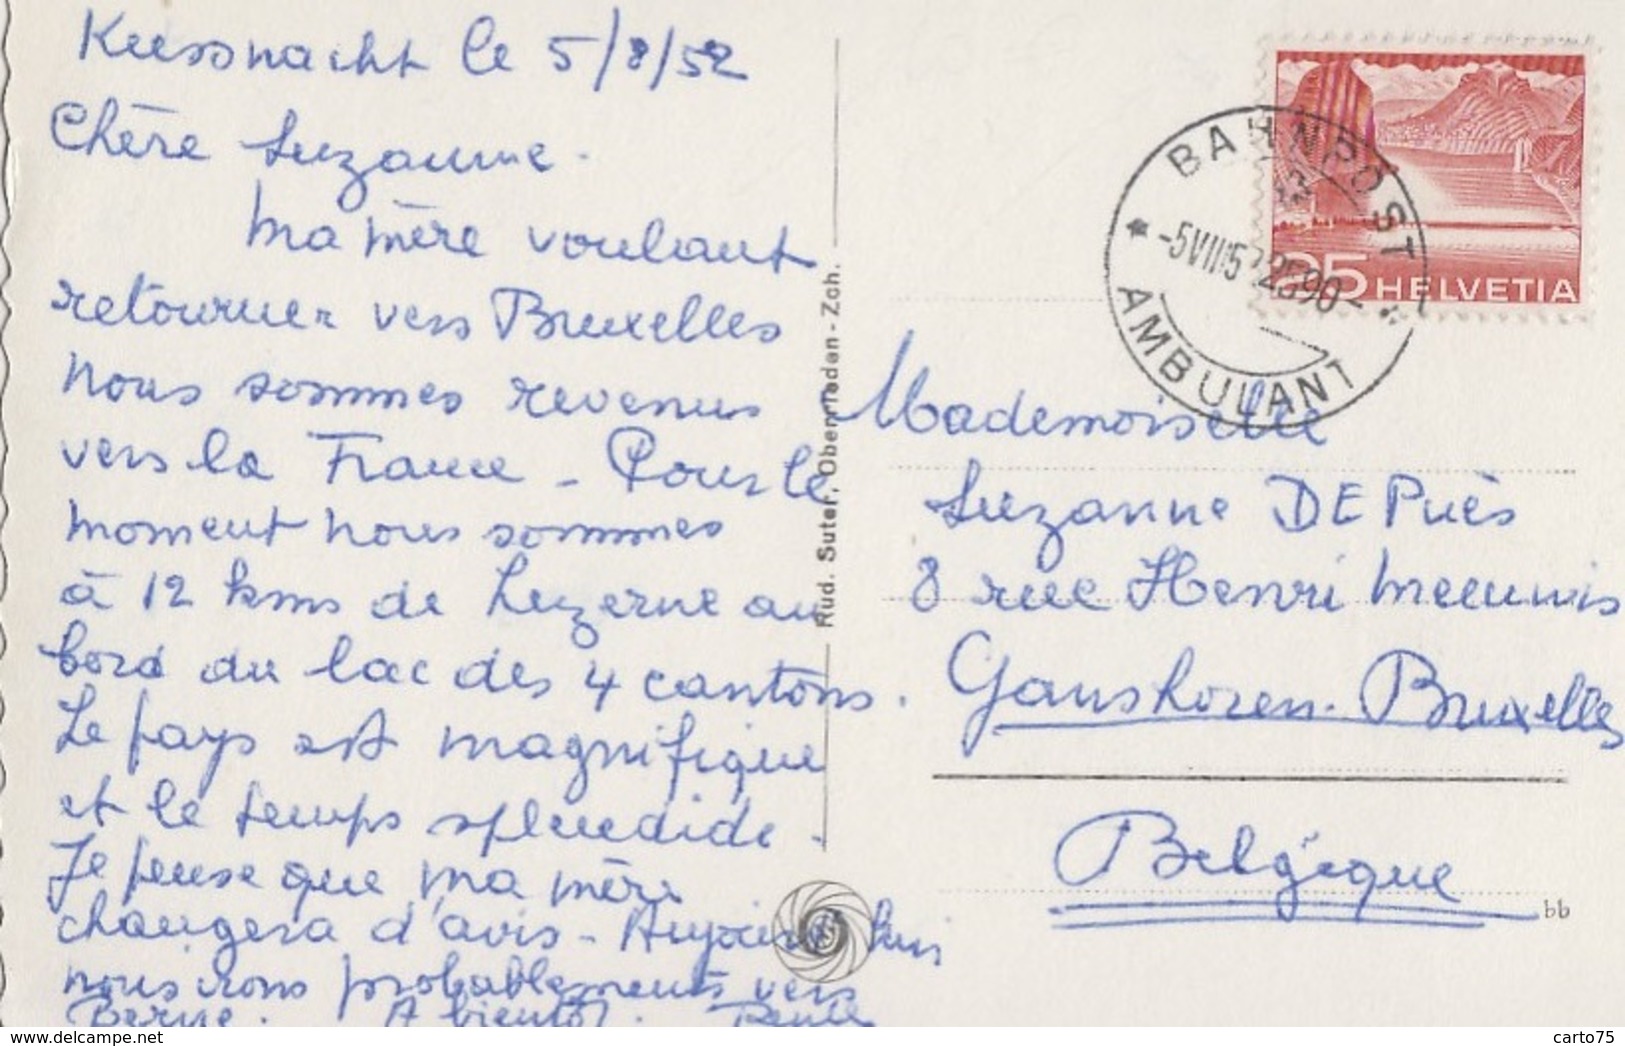 Kussnacht le 5/8/52
Chère Suzanne.
Ma mère voulant
retourner vers Bruxelles
nous sommes revenus
vers la France - Pour le
moment nous sommes
à 12 kms de Luzerne au
bord du lac des 4 cantons.
Le pays est magnifique
et le temps splendide.
Je pense que ma mère
changera d'avis - Aujourd'hui
nous irons probablements vers
Berne. A bientôt.
Rud. Suter, Oberrieden - Zch.
BAHNPOST
-5VIII52
AMBULANT
25 HELVETIA
Mademoiselle
Suzanne DEPuès
8 rue Henri Meeunis
Ganshoren-Bruxelles
Belgique
bb
https://www.delcampe.net
carto75